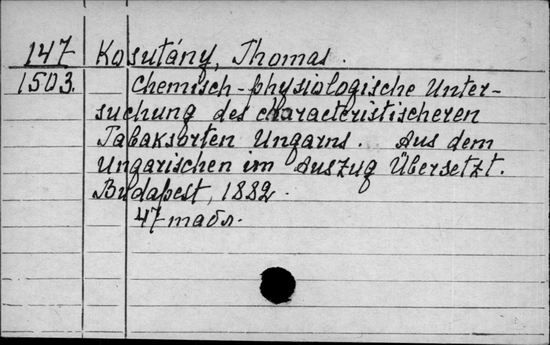 147 Kosutány, Thomas.
1503. Chemisch-physiologische Unter-
suchung des characteristischeren
Tabaksorten Ungarns. Aus dem
Ungarischen im Auszug Übersetzt.
Budapest, 1882.
47 табл.